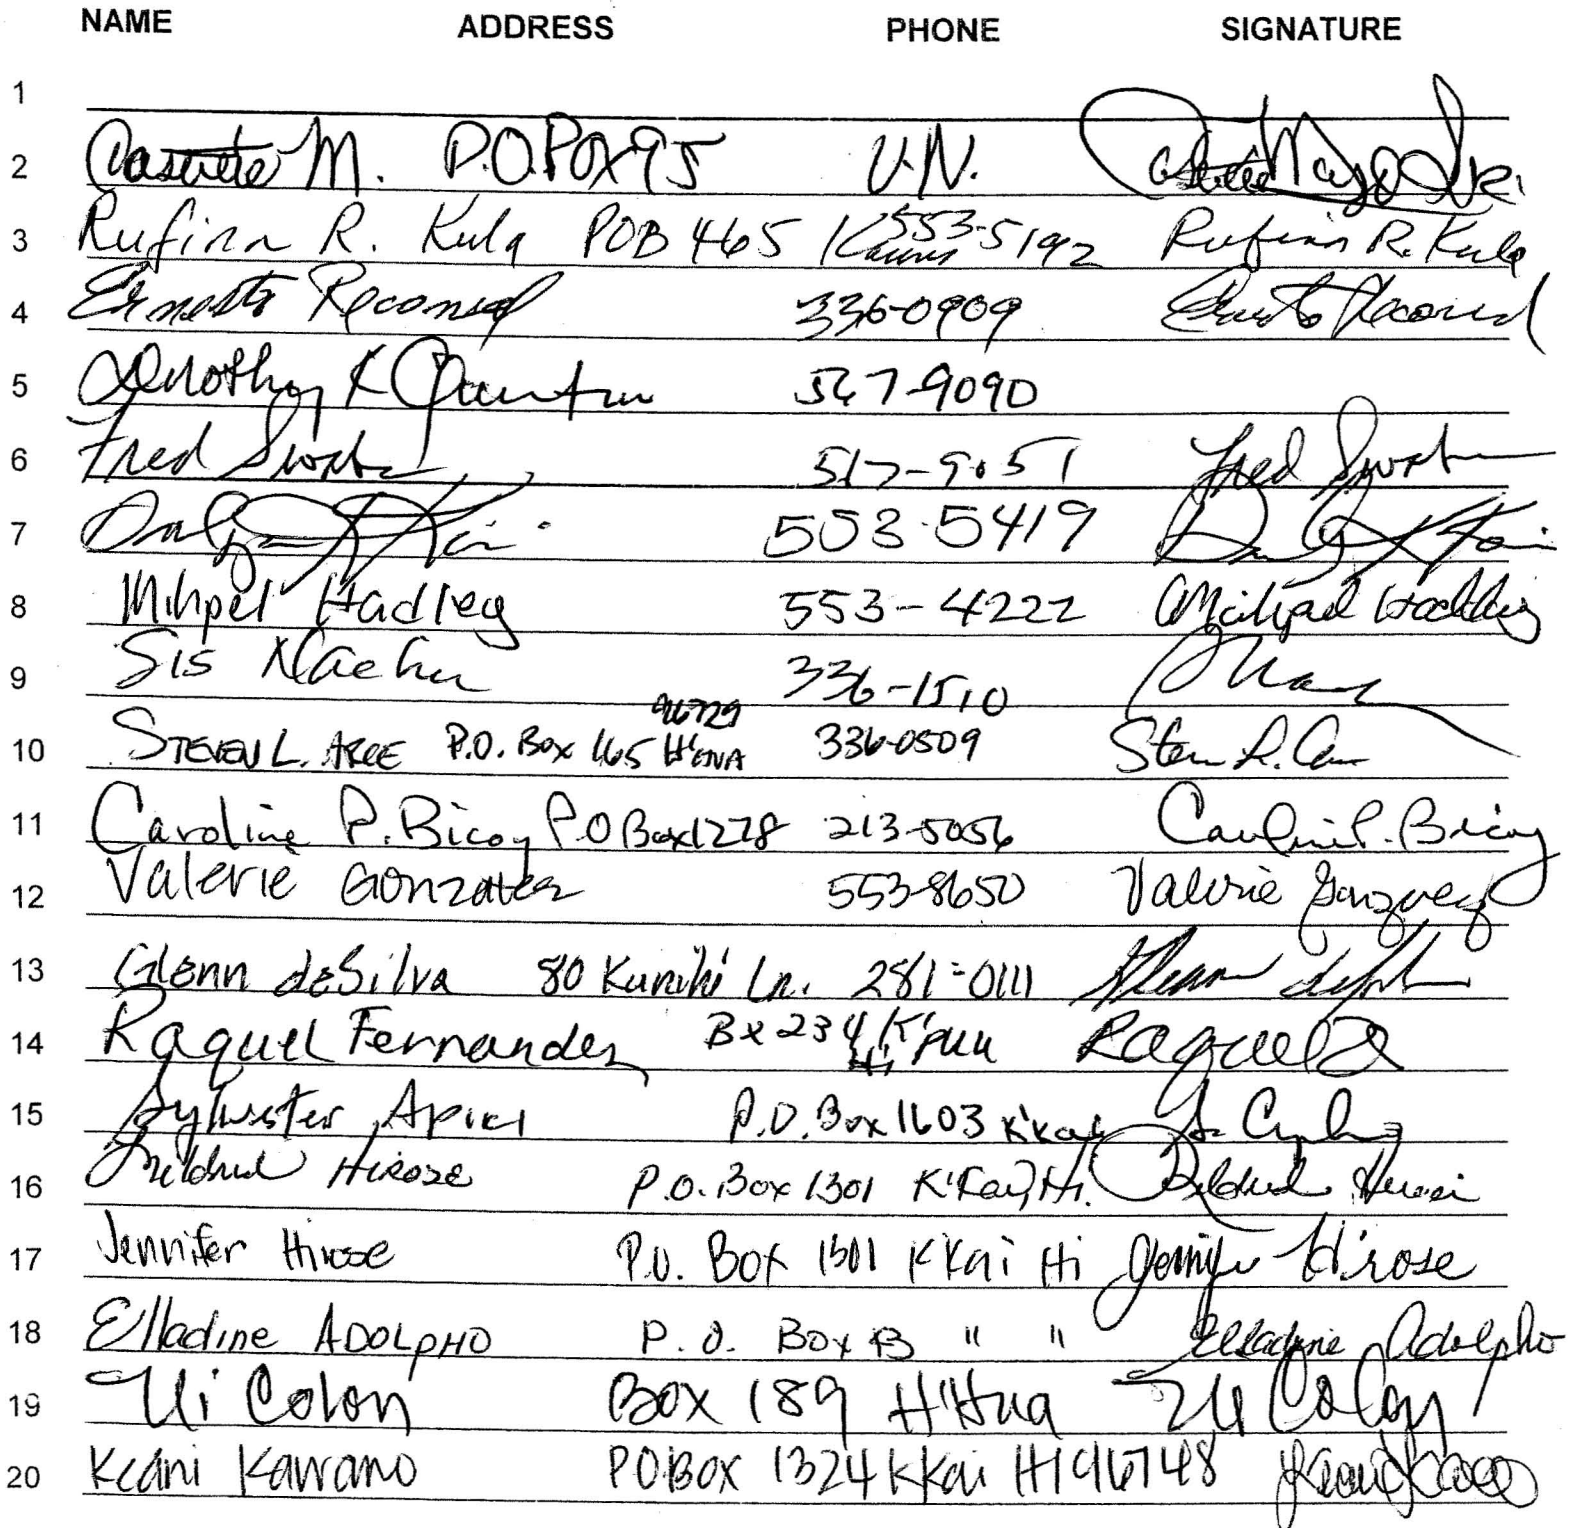 NAME ADDRESS PHONE SIGNATURE
1
2 M. P.O.POX 95 U.N.
3 Rufina R. Kula POB 465 553-5192 Rufina R. Kula
4 Ernesto 336-0909 Ernesto
5 Dorothy K 567-9090
6 Fred Fred
7 553-5419
8 Hadley 553-4222 Michael Hadley
9 Sis Naehu 336-1510
10 STEVEN L. ARCE P.O. Box 165 H'ENA 96729 336-0509 Steven L. Arce
11 Caroline P. Bicoy P.O Box 1278 213-5056 Caroline P. Bicoy
12 Valerie Gonzales 553-8650 Valerie
13 Glenn deSilva 80 Ln. 281-0111 Glenn deSilva
14 Raquel Fernandez Bx 234 K'puu Hi Raquel
15 Sylvester P.O. Box 1603 K'Kai
16 Mildred Hirose P.O. Box 1301 K'Kai, Hi. Mildred Hirose
17 Jennifer Hirose P.O. Box 1301 KKai Hi Jennifer Hirose
18 Elladine ADOLPHO P. O. Box " " Elladine Adolpho
19 Ui Colon Box 189 H'Hua Ui Colon
20 Keani Kawano POBOX 1324 KKai HI 96748